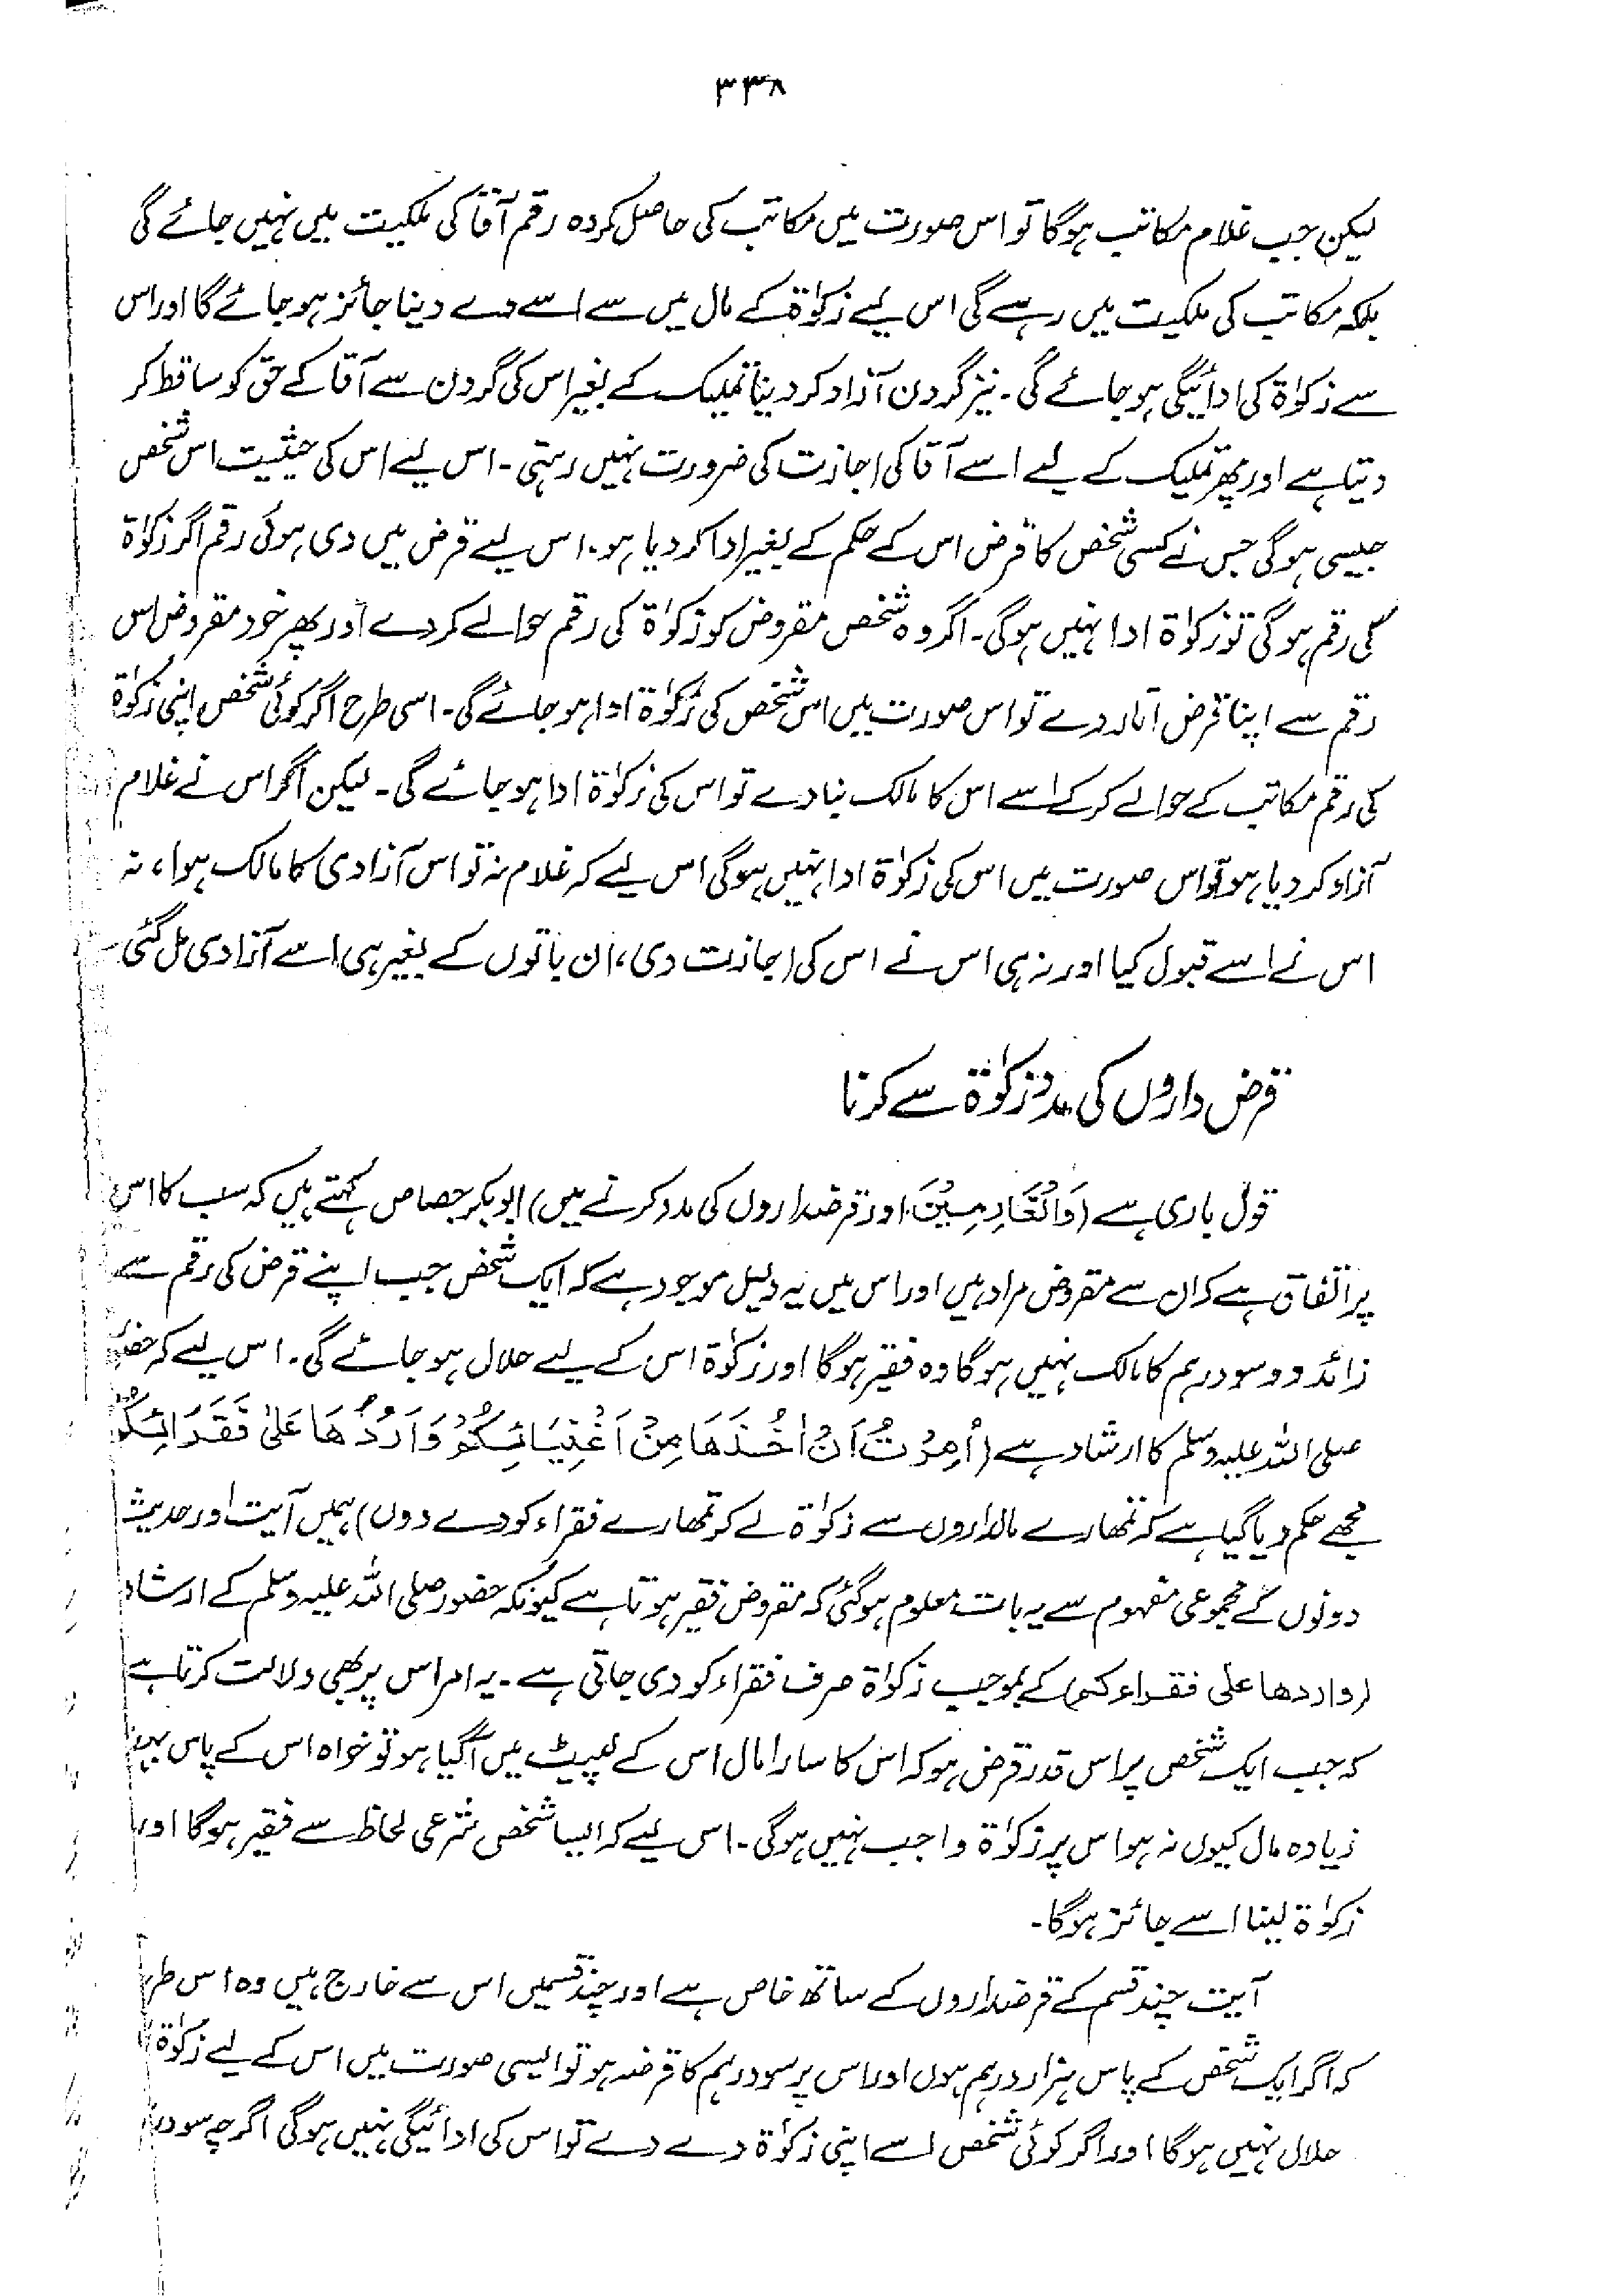 ۳۳۸
لیکن جب غلام مکاتب ہوگا تو اس صورت میں مکاتب کی حاصل کردہ رقم آقا کی ملکیت میں نہیں جائے گی
بلکہ مکاتب کی ملکیت میں رہے گی اس لیے زکوٰۃ کے مال میں سے اسے دے دینا جائز ہو جائے گا اور اس
سے زکوٰۃ کی ادائیگی ہو جائے گی۔ نیز گردن آزاد کر دینا تملیک کے بغیر اس کی گردن سے آقا کے حق کو ساقط کر
دیتا ہے اور پھر تملیک کے لیے اسے آقا کی اجازت کی ضرورت نہیں رہتی۔ اس لیے اس کی حیثیت اس شخص
جیسی ہوگی جس نے کسی شخص کا قرض اس کے حکم کے بغیر ادا کر دیا ہو۔ اس لیے قرض میں دی ہوئی رقم اگر زکوٰۃ
کی رقم ہوگی تو زکوٰۃ ادا نہیں ہوگی۔ اگر وہ شخص مقروض کو زکوٰۃ کی رقم حوالے کر دے اور پھر خود مقروض اس
رقم سے اپنا قرض اتار دے تو اس صورت میں اس شخص کی زکوٰۃ ادا ہو جائے گی۔ اسی طرح اگر کوئی شخص اپنی زکوٰۃ
کی رقم مکاتب کے حوالے کر کے اسے اس کا مالک بنا دے تو اس کی زکوٰۃ ادا ہو جائے گی۔ لیکن اگر اس نے غلام
آزاد کر دیا ہو تو اس صورت میں اس کی زکوٰۃ ادا نہیں ہوگی اس لیے کہ غلام نہ تو اس آزادی کا مالک ہوا، نہ
اس نے اسے قبول کیا اور نہ ہی اس نے اس کی اجازت دی، ان باتوں کے بغیر ہی اسے آزادی مل گئی۔
قرض داروں کی مدد زکوٰۃ سے کرنا
قول باری ہے (وَالْغَارِمِیْنَ، اور قرضداروں کی مدد کرنے میں) ابوبکر جصاص کہتے ہیں کہ سب کا اس
پر اتفاق ہے کہ ان سے مقروض مراد ہیں اور اس میں یہ دلیل موجود ہے کہ ایک شخص جب اپنے قرض کی رقم سے
زائد دو سو درہم کا مالک نہیں ہوگا وہ فقیر ہوگا اور زکوٰۃ اس کے لیے حلال ہو جائے گی۔ اس لیے کہ حضور
صلی اللہ علیہ وسلم کا ارشاد ہے (اُمِرْتُ اَنْ اٰخُذَھَا مِنْ اَغْنِیَائِکُمْ وَاَرُدَّھَا عَلٰی فُقَرَائِکُمْ
مجھے حکم دیا گیا ہے کہ تمھارے مالداروں سے زکوٰۃ لے کر تمھارے فقراء کو دے دوں) ہمیں آیت اور حدیث
دونوں کے مجموعی مفہوم سے یہ بات معلوم ہوگئی کہ مقروض فقیر ہوتا ہے کیونکہ حضور صلی اللہ علیہ وسلم کے ارشاد
(واردھا علی فقراءکم) کے بموجب زکوٰۃ صرف فقراء کو دی جاتی ہے۔ یہ امر اس پر بھی دلالت کرتا ہے
کہ جب ایک شخص پر اس قدر قرض ہو کہ اس کا سارا مال اس کے لپیٹ میں آگیا ہو تو خواہ اس کے پاس بہت
زیادہ مال کیوں نہ ہو اس پر زکوٰۃ واجب نہیں ہوگی۔ اس لیے کہ ایسا شخص شرعی لحاظ سے فقیر ہوگا اور
زکوٰۃ لینا اسے جائز ہوگا۔
آیت چند قسم کے قرضداروں کے ساتھ خاص ہے اور چند قسمیں اس سے خارج ہیں وہ اس طرح
کہ اگر ایک شخص کے پاس ہزار درہم ہوں اور اس پر سو درہم کا قرضہ ہو تو ایسی صورت میں اس کے لیے زکوٰۃ
حلال نہیں ہوگا اور اگر کوئی شخص اسے اپنی زکوٰۃ دے دے تو اس کی ادائیگی نہیں ہوگی اگرچہ سو